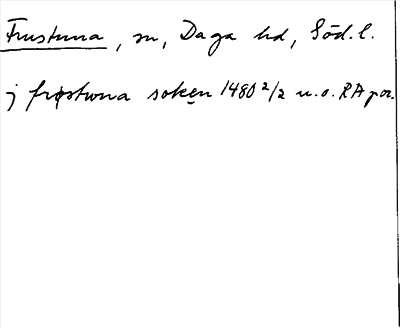 Frustuna, sn, Daga hd, Söd.l.
j frøstwna soken 1480 2/2 u.o. RA por.